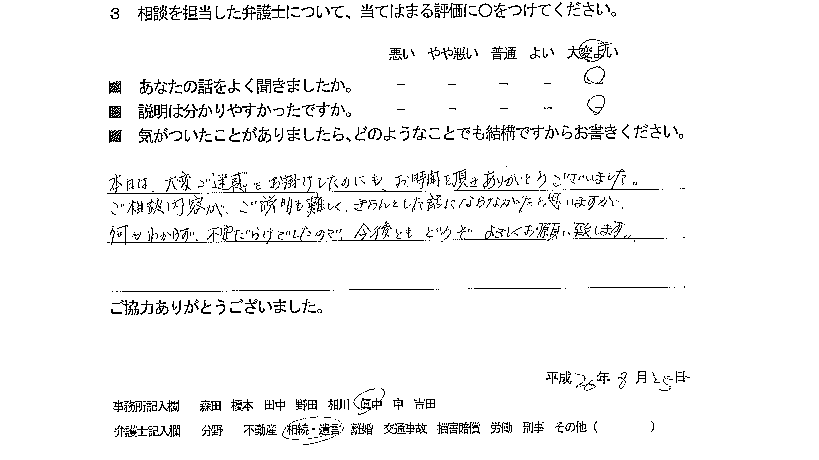 3 相談を担当した弁護士について、当てはまる評価に○をつけてください。
悪い やや悪い 普通 よい 大変よい
あなたの話をよく聞きましたか。 － － － － ○
説明は分かりやすかったですか。 － － － － ○
気がついたことがありましたら、どのようなことでも結構ですからお書きください。
本日は、大変ご迷惑をお掛けしたのにも、お時間を頂きありがとうございました。
ご相談内容が、ご説明も難しく、きちんとした話にならなかたと思いますが、
何もわからず、不安だらけでしたので、今後とも どうぞ よろしくお願い致します。
ご協力ありがとうございました。
平成26年8月25日
事務所記入欄 森田 榎本 田中 野田 相川 眞中 申 吉田
弁護士記入欄 分野 不動産 相続・遺言 離婚 交通事故 損害賠償 労働 刑事 その他（ ）